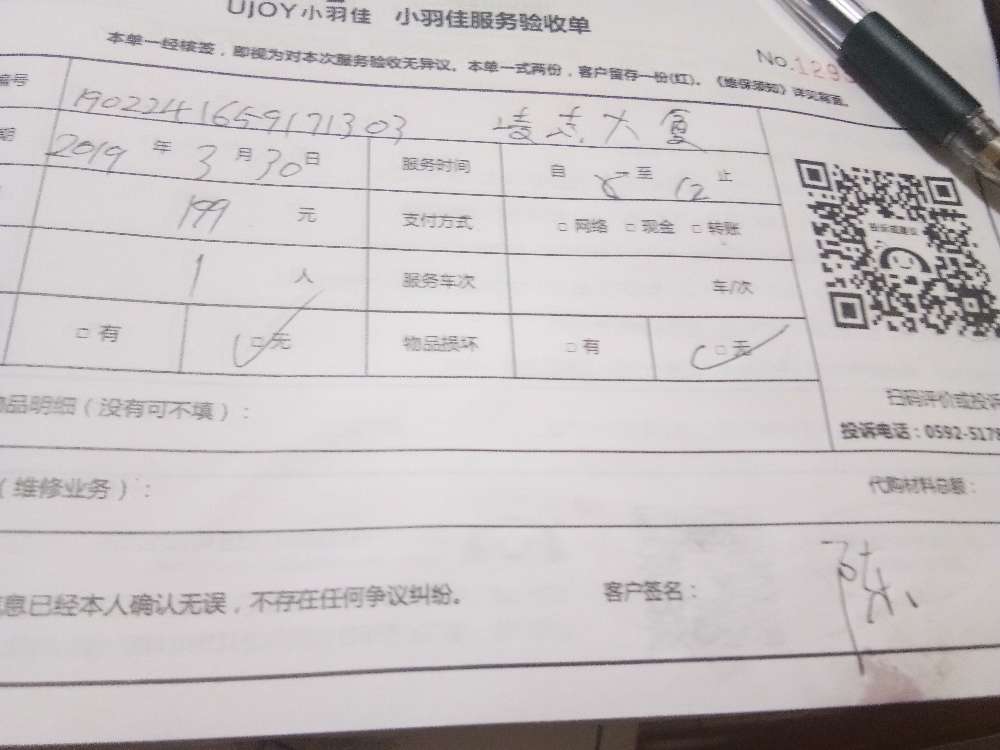 UJOY小羽佳 小羽佳服务验收单
本单一经核签，即视为对本次服务验收无异议。本单一式两份，客户留存一份(红)。《维保须知》详见背面。
No.129
编号 1902241659171303 大厦
期 2019 年 3 月 30 日 服务时间 自 8 至 12 止
199 元 支付方式 □ 网络 □ 现金 □ 转账
1 人 服务车次 车/次
□ 有 □ 无 物品损坏 □ 有 □ 无
扫码评价或投诉
物品明细（没有可不填）：
投诉电话：0592-5179
（维修业务）： 代购材料总额：
信息已经本人确认无误，不存在任何争议纠纷。 客户签名： 陈